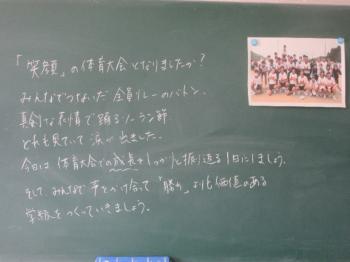 「笑顔」の体育大会となりましたか？
みんなでつないだ全員リレーのバトン。
真剣な表情で踊るソーラン節
どれも見ていて涙が出ました。
今日は体育大会での成長を1つ1つ振り返る1日にしましょう。
そして、みんなで声をかけ合って「勝ち」よりも価値のある
学級をつくっていきましょう。